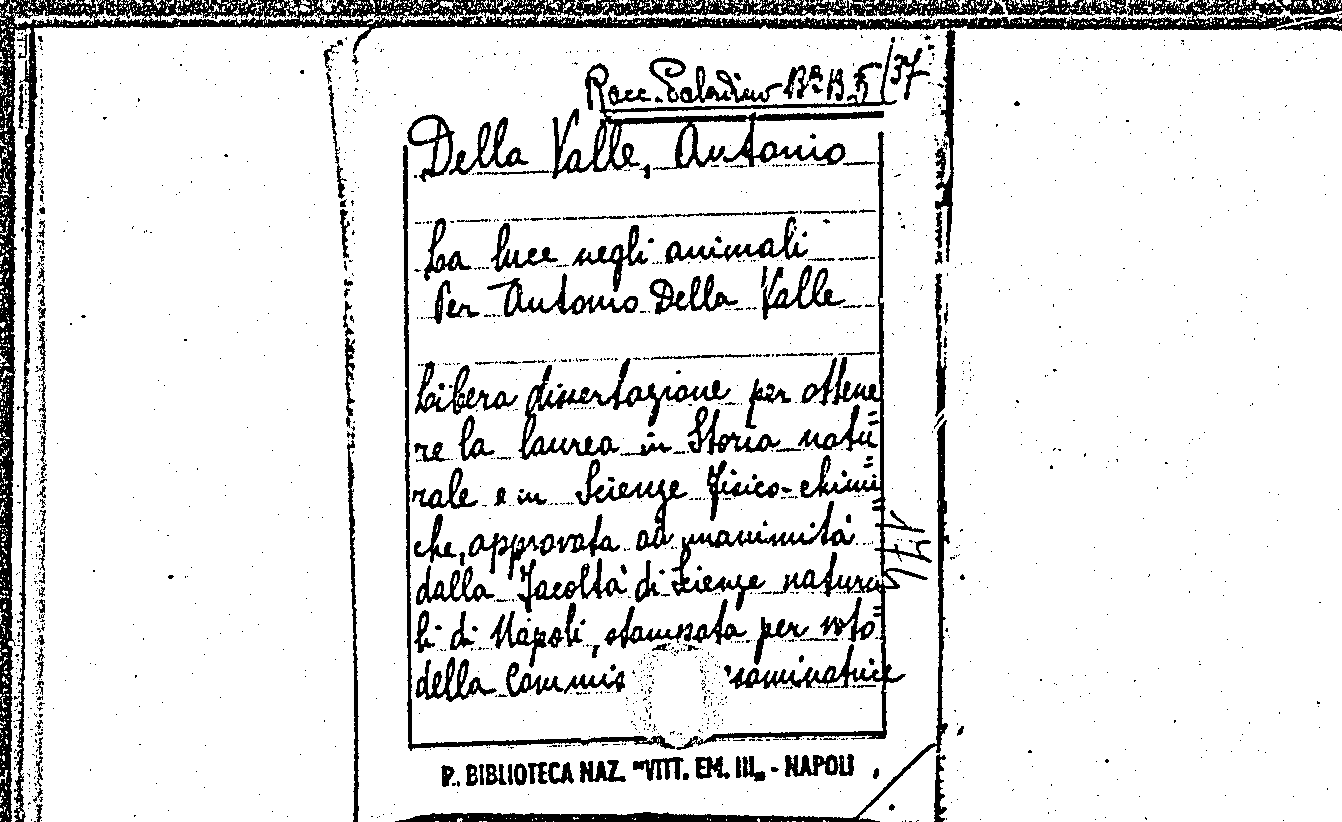 Racc. Paladino Bª B. 5 / 37
Della Valle, Antonio
La luce negli animali
Per Antonio Della Valle
Libera dissertazione per ottene
re la laurea in Storia natu=
rale e in Scienze fisico-chimi=
che, approvata ad unanimità
dalla Facoltà di Scienze natura=
li di Napoli, stampata per voto
della Commis saminatrice
R. BIBLIOTECA NAZ. "VITT. EM. III„ - NAPOLI